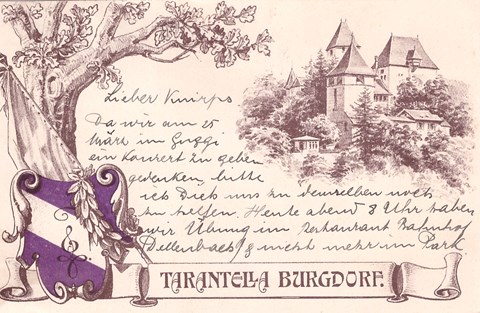 Lieber Knirps
Da wir am 25
März im Guggi
ein Konzert zu geben
gedenken, bitte
ich Dich uns zu demselben noch
zu helfen. Heute abend 8 Uhr haben
wir Übung im Restaurant Bahnhof
& nicht mehr im Park
TARANTELLA BURGDORF.